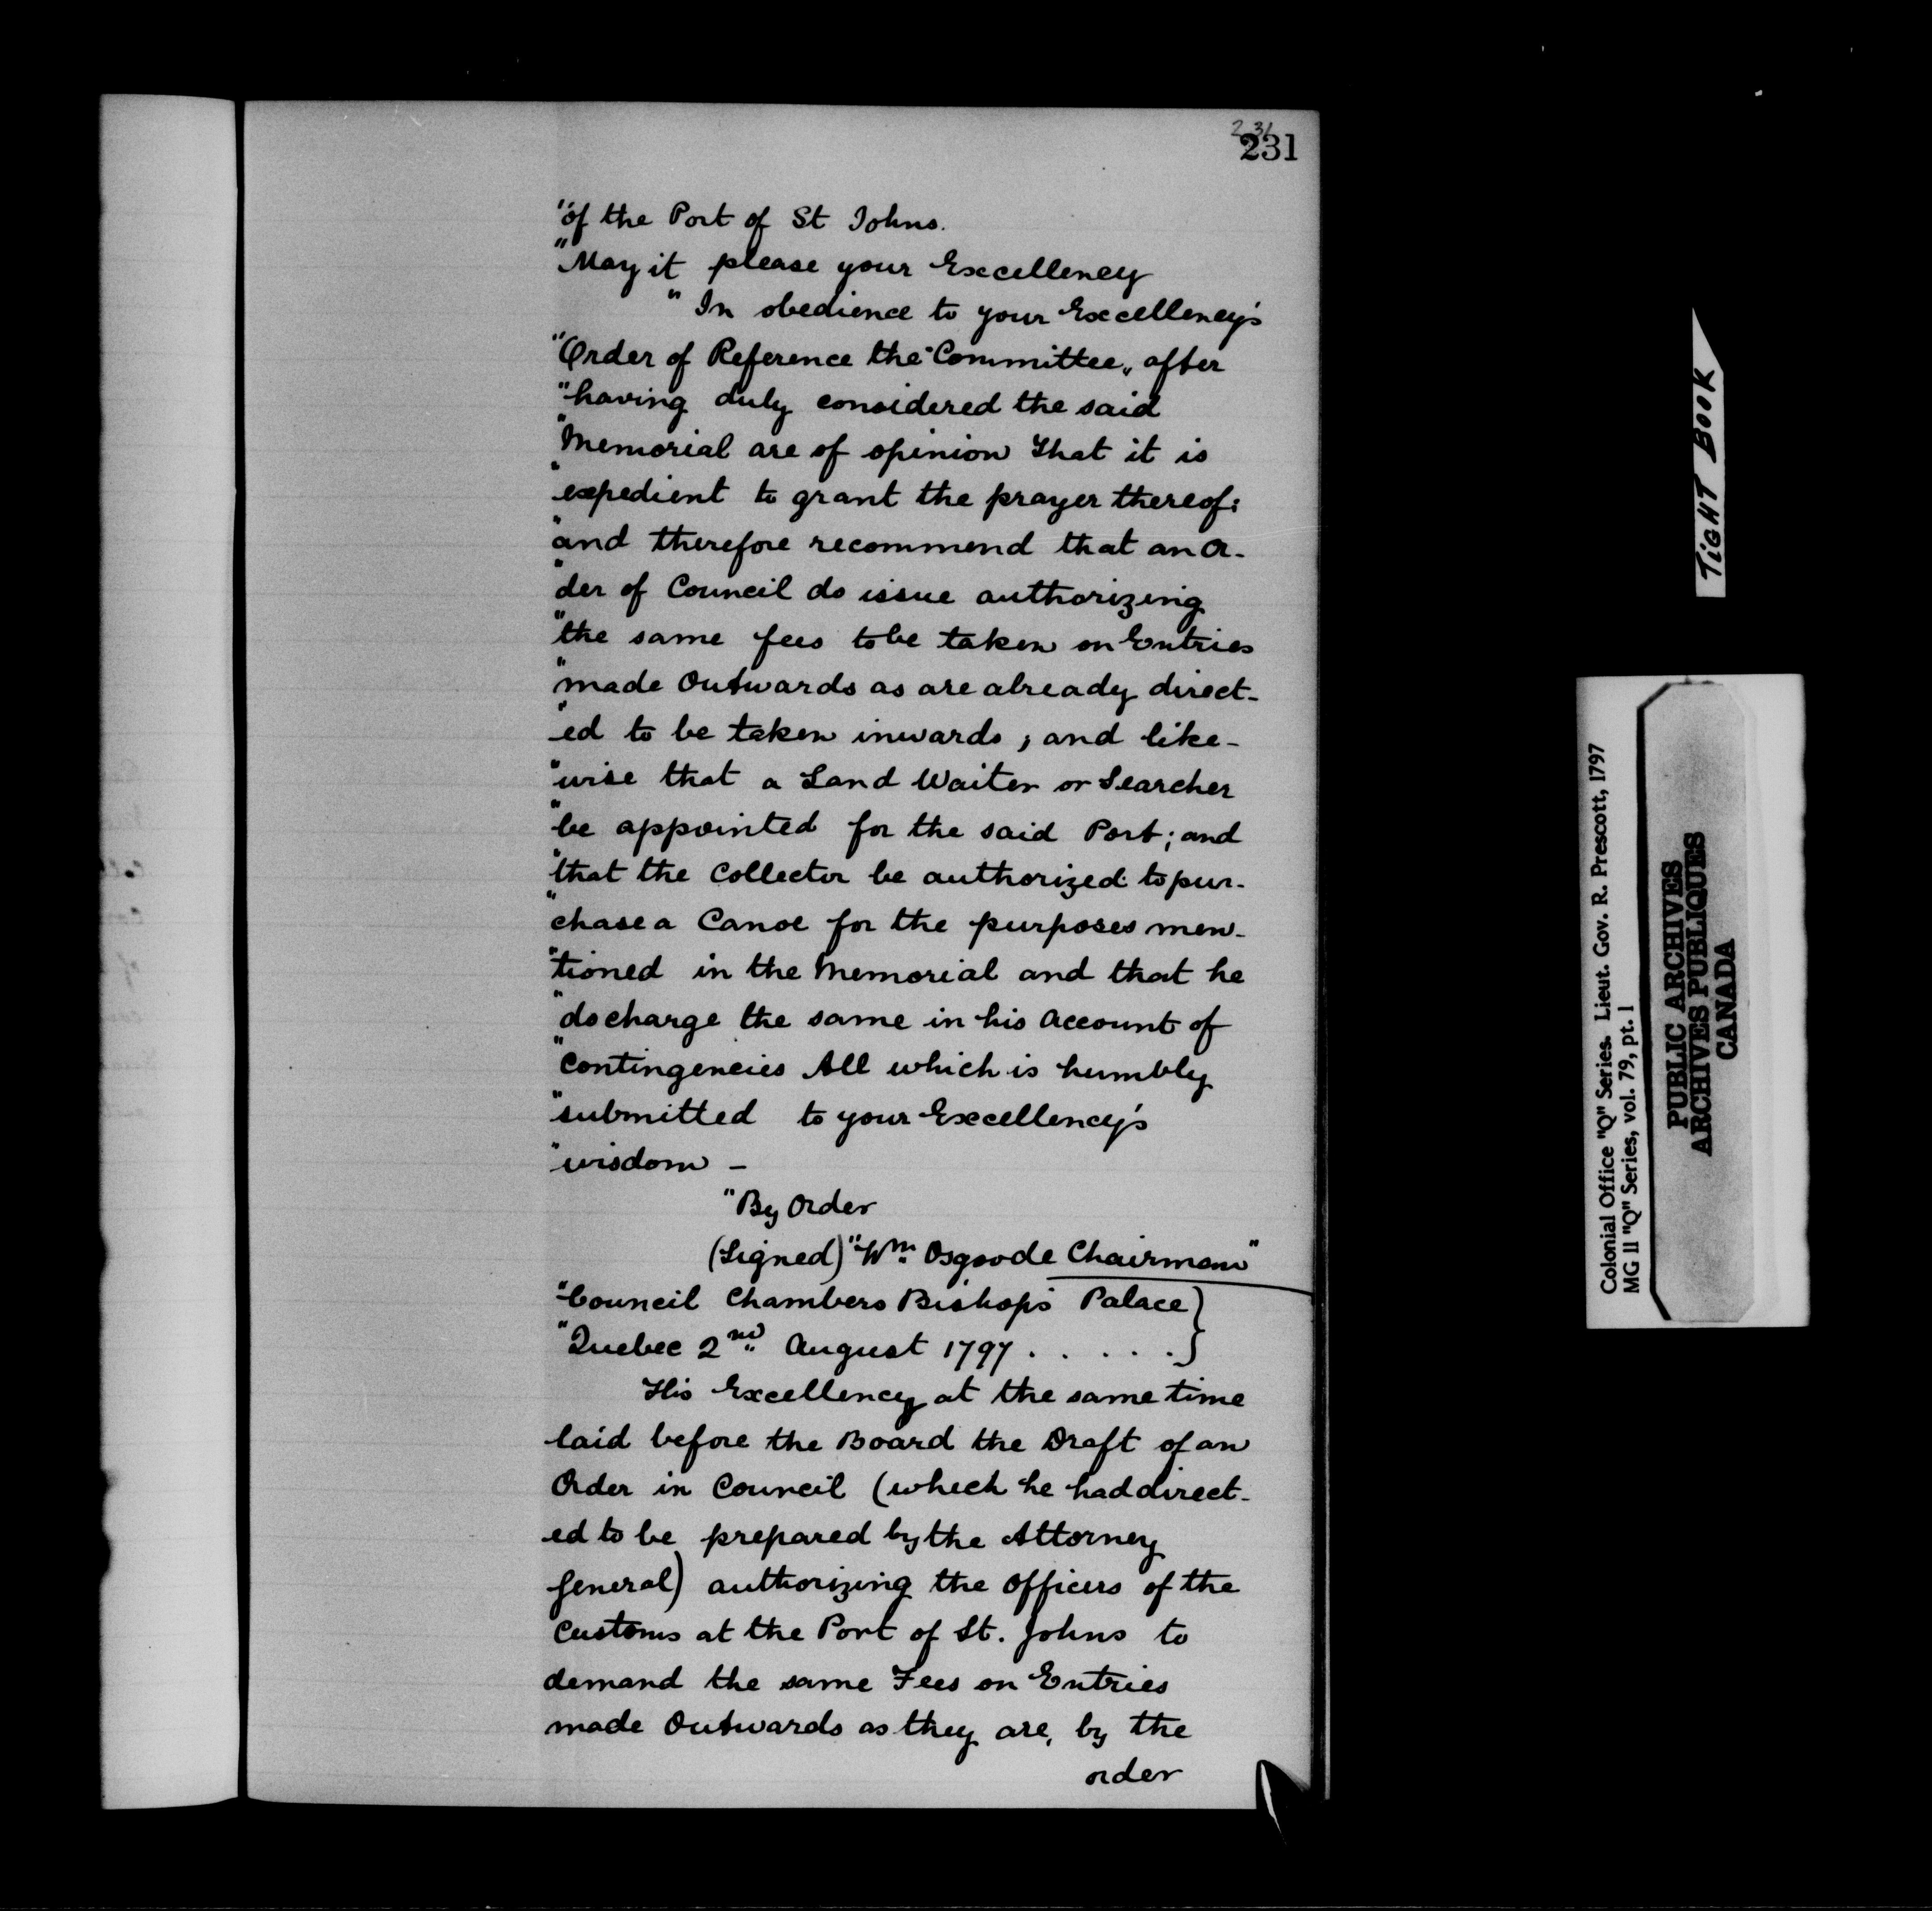 231
231
"of the Port of St Johns.
"May it please your Excellency
" In obedience to your Excellency's
"Order of Reference the "Committee" after
"having duly considered the said
"Memorial are of opinion that it is
"expedient to grant the prayer thereof:
"and therefore recommend that an Or-
"der of Council do issue authorizing
"the same fees to be taken on Entries
"made Outwards as are already direct-
"ed to be taken inwards, and like-
"wise that a Land Waiter or Searcher
"be appointed for the said Port; and
"that the Collector be authorized to pur-
"chase a Canoe for the purposes men-
"tioned in the Memorial and that he
"do charge the same in his Account of
"Contingencies All which is humbly
"submitted to your Excellency's
"wisdom -
"By Order
(Signed) "Wm. Osgoode Chairman"
"Council Chambers Bishops Palace }
"Quebec 2nd August 1797 . . . . . }
His Excellency at the same time
laid before the Board the Draft of an
Order in Council (which he had direct-
ed to be prepared by the Attorney
General) authorizing the Officers of the
Customs at the Port of St. Johns to
demand the same Fees on Entries
made Outwards as they are, by the
order
TIGHT BOOK
Colonial Office "Q" Series. Lieut. Gov. R. Prescott, 1797
MG 11 "Q" Series, vol. 79, pt. 1
PUBLIC ARCHIVES
ARCHIVES PUBLIQUES
CANADA